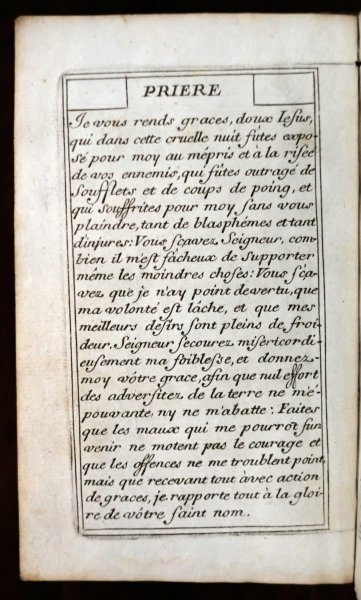 PRIERE
Je vous rends graces, doux Iesus,
qui dans cette cruelle nuit fûtes expo-
sé pour moy au mépris et à la risée
de vos ennemis, qui fûtes outragé de
soufflets et de coups de poing, et
qui souffrites pour moy sans vous
plaindre, tant de blasphémes et tant
d'injures: Vous sçavez, Seigneur, com-
bien il m'est fâcheux de supporter
même les moindres choses: Vous sça-
vez que je n'ay point de vertu, que
ma volonté est lâche, et que mes
meilleurs desirs sont pleins de froi-
deur. Seigneur secourez misericordi-
eusement ma foiblesse, et donnez-
moy vôtre grace, afin que nul effort
des adversitez de la terre ne m'é-
pouvante, ny ne m'abatte: Faites
que les maux qui me pourrot sur-
venir ne m'otent pas le courage et
que les offences ne me troublent point,
mais que recevant tout avec action
de graces, je rapporte tout à la gloi-
re de vôtre saint nom.